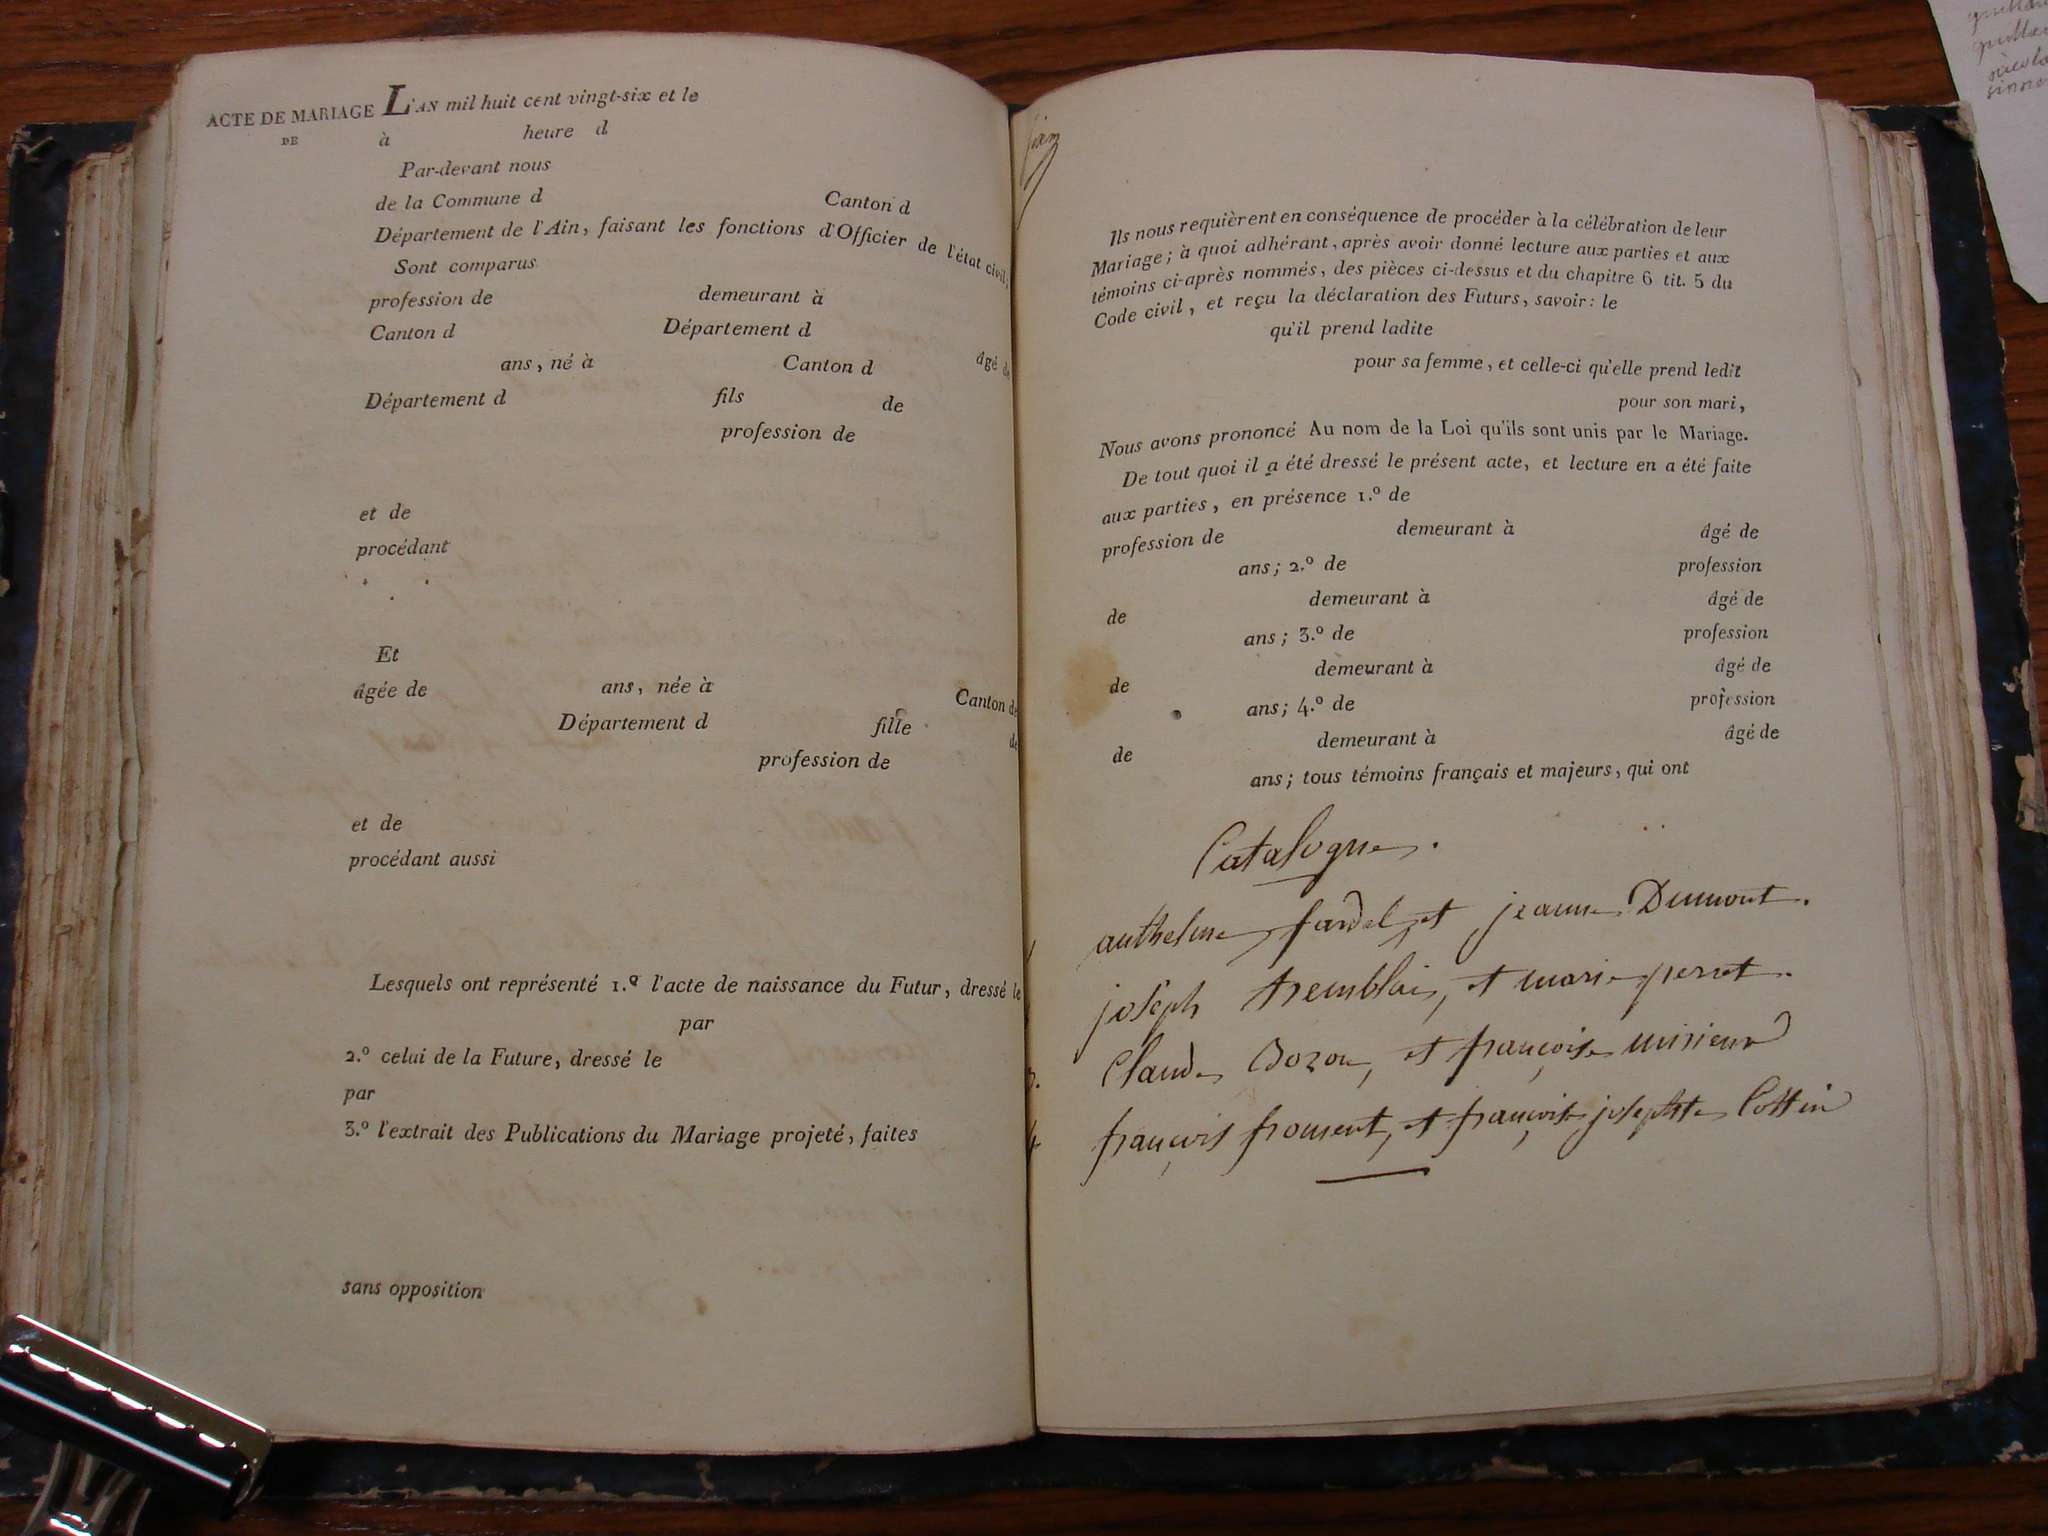 ACTE DE MARIAGE L'AN mil huit cent vingt-six et le
DE à heure d
Par-devant nous
de la Commune d Canton d
Département de l'Ain, faisant les fonctions d'Officier de l'état civil;
Sont comparus
profession de demeurant à
Canton d Département d âgé de
ans, né à Canton d
Département d fils de
profession de
et de
procédant
Et
âgée de ans, née à Canton de
Département d fille de
profession de
et de
procédant aussi
Lesquels ont représenté 1.º l'acte de naissance du Futur, dressé le
par
2.º celui de la Future, dressé le
par
3.º l'extrait des Publications du Mariage projeté, faites
sans opposition
Ils nous requièrent en conséquence de procéder à la célébration de leur
Mariage; à quoi adhérant, après avoir donné lecture aux parties et aux
témoins ci-après nommés, des pièces ci-dessus et du chapitre 6 tit. 5 du
Code civil, et reçu la déclaration des Futurs, savoir: le
qu'il prend ladite
pour sa femme, et celle-ci qu'elle prend ledit
pour son mari,
Nous avons prononcé Au nom de la Loi qu'ils sont unis par le Mariage.
De tout quoi il a été dressé le présent acte, et lecture en a été faite
aux parties, en présence 1.º de
profession de demeurant à âgé de
ans; 2.º de profession
de demeurant à âgé de
ans; 3.º de profession
de demeurant à âgé de
ans; 4.º de profession
de demeurant à âgé de
ans; tous témoins français et majeurs, qui ont
Catalogue.
anthelme fardel, et jeanne Dumont.
joseph tremblai, et marie perret.
3. Claude Bozon, et françoise
4 françois froment, et françoise josephte Cottin